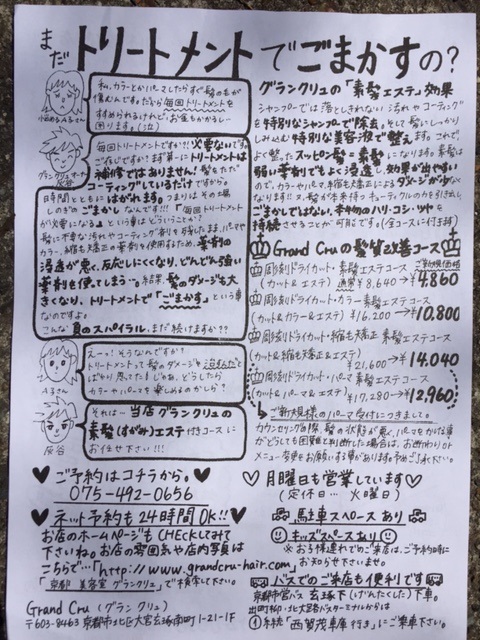 まだトリートメントでごまかすの?
私、カラーとかパーマしたらすぐ髪の毛が
傷むんです。だから毎回トリートメントを
すすめられるけれど、お金もかかるし…
困ります。(泣)
グランクリュオーナー
灰谷
必要ないです。
ご存じですか?まず第一にトリートメントは
補修ではありません!髪をただ
コーティングしているだけですから。
時間とともにはがれます。つまりはその場
しのぎのごまかしなんです!!「毎回トリートメント
が必要になる」という事はどういうことか?
髪に不要な汚れやコーティング剤を残したまま、パーマや
カラー、縮毛矯正の薬剤を使用するため、薬剤の
浸透が悪く、反応しにくくなり、どんどん強い
薬剤を使ってしまう…。結果、髪のダメージも大
きくなり、トリートメントで「ごまかす」という事
なのですよ。
こんな負のスパイラル、まだ続けますか??
えーっ!そうなんですか?
トリートメントって髪のダメージを
ばかり思ってた!じゃあ、どうしたら
カラーやパーマを楽しめるのかしら?
それは…当店グランクリュの
素髪(すがみ)エステ付きコースに
お任せ下さい!!!
灰谷
グランクリュの「素髪エステ」効果
シャンプーでは落としきれない汚れやコーティング
を特別なシャンプーで除去。そして髪にしっかり
しみ込む特別な美容液で整えます。これで、
よく整ったスッピン髪=素髪になります。素髪は
弱い薬剤でもよく浸透し、効果が出やすい
ので、カラーやパーマ、縮毛矯正によるダメージが少なく
なります!!又、髪が本来持つキューティクルの力を引き出し、
ごまかしではない、本物のハリ・コシ・ツヤを
持続させることが可能です。(全コースに付きます)
Grand Cruの髪質改善コース
ご新規価格
彫刻ドライカット・素髪エステコース
(カット&エステ) 通常 ¥8,640→¥4,860
彫刻ドライカット・カラー素髪エステコース
(カット&カラー&エステ) ¥16,200→¥10,800
彫刻ドライカット・縮毛矯正 素髪エステコース
(カット&縮毛矯正&エステ) ¥21,600→¥14,040
彫刻ドライカット・パーマ 素髪エステコース
(カット&パーマ&エステ) ¥17,280→¥12,960
ご新規様のパーマ受付につきまして。
カウンセリングの際、髪の状態が悪く、パーマをかける事
がどうしても困難と判断した場合は、お断わりorト
メニュー変更をお願いする事があります。予めご了承下さい。
ご予約はコチラから。
075-492-0656
ネット予約も24時間OK!!
お店のホームページもCHECKしてみて
下さいね。お店の雰囲気や店内写真は
こちらで…「http://www.grandcru-hair.com」
「京都 美容室 グランクリュ」で検索して下さい。
Grand Cru (グランクリュ)
〒603-8463 京都市北区大宮玄琢南町1-21-1F
月曜日も営業しています
(定休日… 火曜日)
駐車スペースあり
キッズスペースあり
※お子様連れでのご来店は、ご予約時に
お知らせ下さいませ。
バスでのご来店も便利です
京都市営バス 玄琢下(げんたくした)下車。
出町柳・北大路バスターミナルからは
①系統「西賀茂車庫行き」にご乗車下さい。